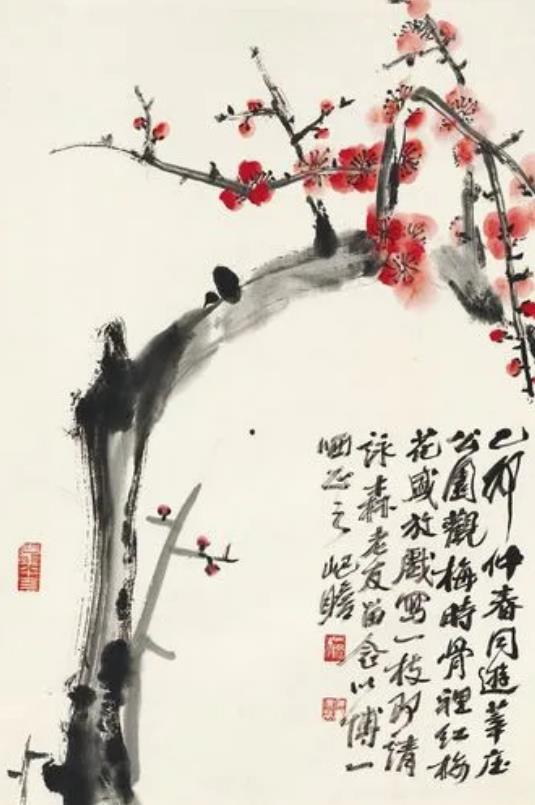 己卯仲春同遊莘庄
公園觀梅時骨裡红梅
花盛放戲寫一枝即請
詠森老友留念以博一
哂正之 屺瞻